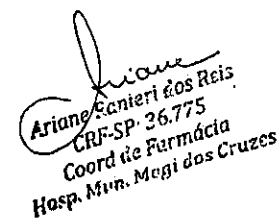 Ariane
Ariane Ranieri dos Reis
CRF-SP 36.775
Coord de Farmácia
Hosp. Mun. Mogi dos Cruzes